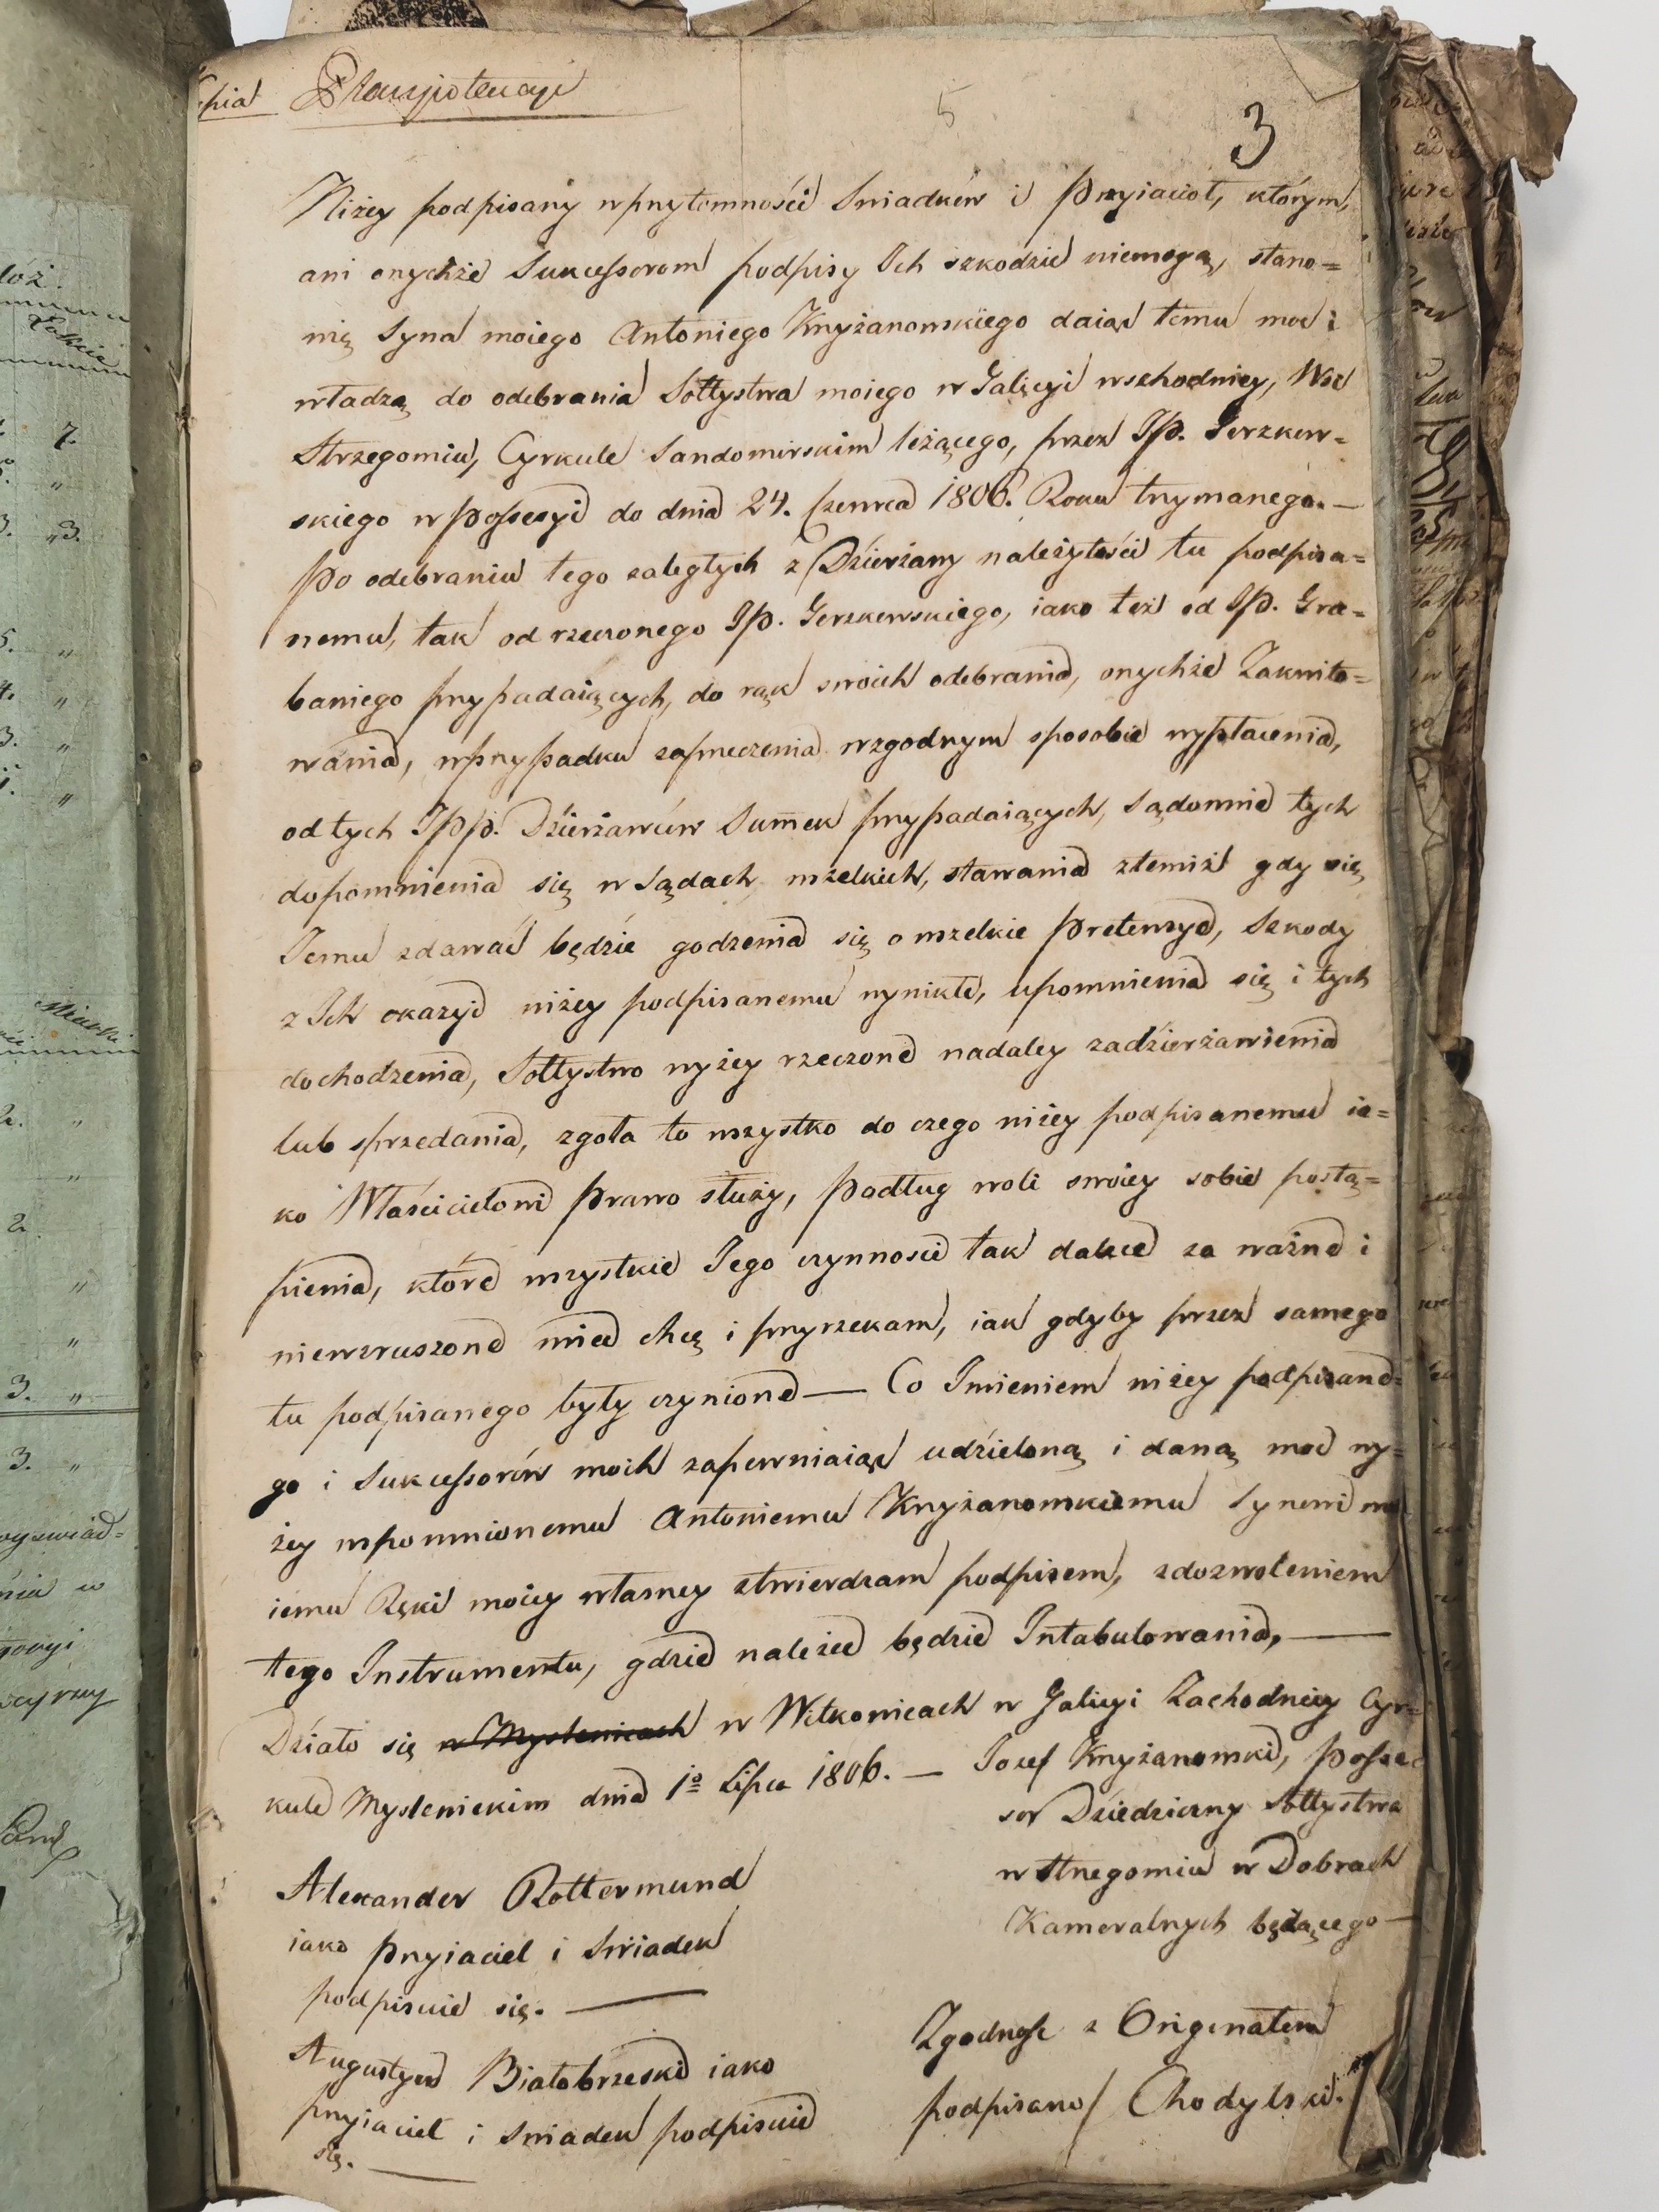 Kopia Plenipotencyi
5
3
Niżey podpisany w przytomności Swiadków i Przyiacioł, którym,
ani onychże Sukcessorom podpisy Ich szkodzić niemogą, stano=
wię Syna moiego Antoniego Krzyżanowskiego daiąc temu moc i
władzą do odebrania Sołtystwa moiego w Galicyi wschodniey, Wsi
Strzegomiu, Cyrkule Sandomirskim leżącego, przez JP. Gerzkow=
skiego w possessyi do dnia 24. Czerwca 1806. Roku trzymanego. —
Po odebraniu tego zaległych z Dzierżawy należytości tu podpisa=
nemu, tak od rzeczonego JP. Gerzkowskiego, iako też od JP. Gra=
baniego przypadaiących, do rąk swoich odebrania, onychże Zakwito=
wania, w przypadku zaprzeczenia w zgodnym sposobie wypłacenia,
od tych JPP. Dzierżawców Summ przypadaiących, Sądownie tych
dopomnienia się w Sądach wszelkich, stawania z temiż gdy się
Jemu zdawać będzie godzenia się o wszelkie Pretensye, Szkody
z Ich okazyi niżey podpisanemu wynikłe, upomnienia się i tych
dochodzenia, Sołtystwo wyżey rzeczone nadaley zadzierżawienia
lub sprzedania, zgoła to wszystko do czego niżey podpisanemu ia=
ko Właścicielowi Prawo służy, Podług woli swoiey sobie postą=
pienia, które wszystkie Jego czynnoscie tak dalece za ważne i
niewzruszone mieć chcę i przyrzekam, iak gdyby przez samego
tu podpisanego były czynione — Co Imieniem niżey podpisane=
go i Sukcessorów moich zapewniaiąc udzieloną i daną moc wy=
żey wspomnionemu Antoniemu Krzyżanowskiemu Synowi mo
iemu Ręki moiey własney ztwierdzam podpisem, z dozwoleniem
tego Instrumentu, gdzie należeć będzie Intabulowania, —
Działo się w Myslenicach w Witkowicach w Galicyi Zachodniey Cyr=
kule Myslenickim dnia 1o Lipca 1806. — Jozef Krzyżanowski, Posses
sor Dziedziczny Sołtystwa
w Strzegomiu w Dobrach
Kameralnych będącego —
Alexander Rottermund
iako przyiaciel i Swiadek
podpisuie się. —
Augustyn Białobrzeski iako
przyiaciel i Swiadek podpisuie
się. —
Zgodność z Originałem
podpisano/ Chodylski.